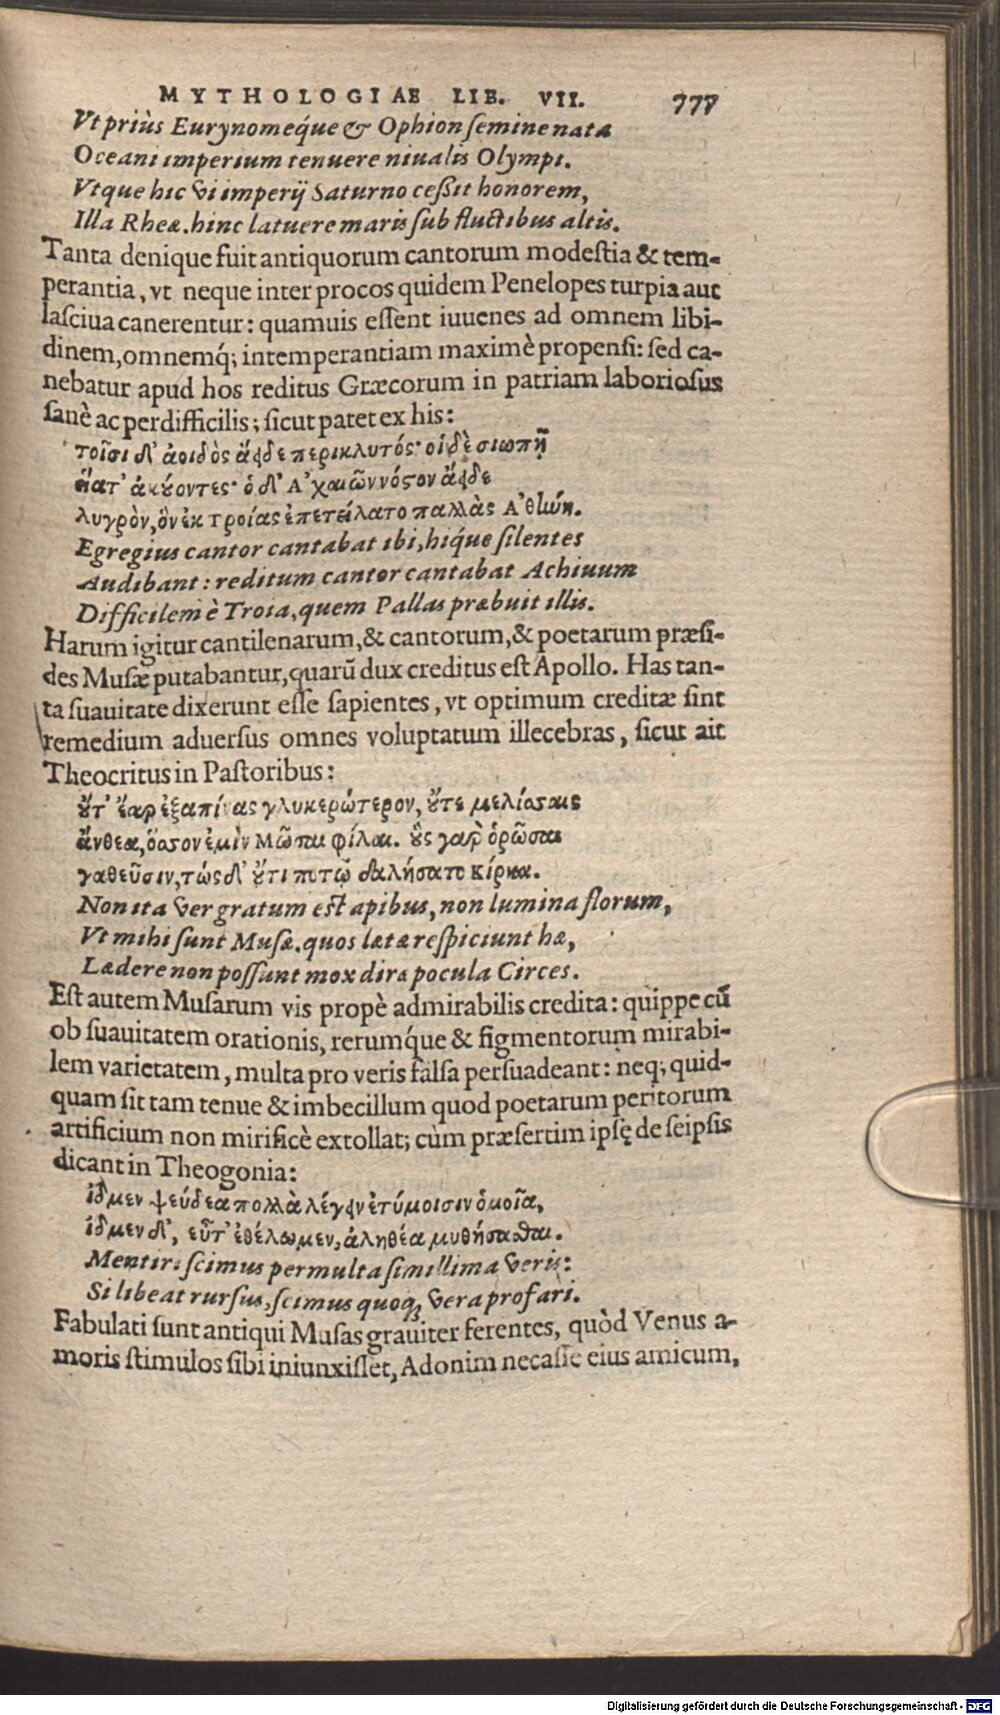 MYTHOLOGIAE LIB. VII. 777
Vt priùs Eurynomeq́ue & Ophion semine nata
Oceani imperium tenuere niualis Olympi.
Vtque hic vi imperij Saturno ceßit honorem,
Illa Rheæ. hinc latuere maris sub fluctibus altis.
Tanta denique fuit antiquorum cantorum modestia & tem-
perantia, vt neque inter procos quidem Penelopes turpia aut
lasciua canerentur: quamuis essent iuuenes ad omnem libi-
dinem, omnemq́; intemperantiam maximè propensi: sed ca-
nebatur apud hos reditus Græcorum in patriam laboriosus
sanè ac perdifficilis; sicut patet ex his:
τοῖσι δ' ἀοιδὸς ἄειδε περικλυτός· οἱ δὲ σιωπῇ
εἵατ' ἀκούοντες· ὁ δ' Ἀχαιῶν νόστον ἄειδε
λυγρὸν, ὃν ἐκ τροίας ἐπετείλατο παλλὰς Ἀθήνη.
Egregius cantor cantabat ibi, hiq́ue silentes
Audibant: reditum cantor cantabat Achiuum
Difficilem è Troia, quem Pallas præbuit illis.
Harum igitur cantilenarum, & cantorum, & poetarum præsi-
des Musæ putabantur, quarũ dux creditus est Apollo. Has tan-
ta suauitate dixerunt esse sapientes, vt optimum creditæ sint
remedium aduersus omnes voluptatum illecebras, sicut ait
Theocritus in Pastoribus:
οὔτ' ἔαρ ἐξαπίνας γλυκερώτερον, οὔτε μελίσσαις
ἄνθεα, ὅσσον ἐμὶν Μῶσαι φίλαι. οὓς γὰρ ὁρῶσαι
γαθεῦσιν, τὼς δ' οὔτι ποτῷ δαλήσατο Κίρκα.
Non ita ver gratum est apibus, non lumina florum,
Vt mihi sunt Musæ. quos lætæ respiciunt hæ,
Lædere non possunt mox dira pocula Circes.
Est autem Musarum vis propè admirabilis credita: quippe cũ
ob suauitatem orationis, rerumq́ue & figmentorum mirabi-
lem varietatem, multa pro veris falsa persuadeant: neq; quid-
quam sit tam tenue & imbecillum quod poetarum peritorum
artificium non mirificè extollat; cùm præsertim ipsę de seipsis
dicant in Theogonia:
ἴδμεν ψεύδεα πολλὰ λέγειν ἐτύμοισιν ὁμοῖα,
ἴδμεν δ', εὖτ' ἐθέλωμεν, ἀληθέα μυθήσασθαι.
Mentiri scimus permulta simillima veris:
Si libeat rursus, scimus quoq; vera profari.
Fabulati sunt antiqui Musas grauiter ferentes, quòd Venus a-
moris stimulos sibi iniunxisset, Adonim necasse eius amicum,
Digitalisierung gefördert durch die Deutsche Forschungsgemeinschaft - DFG